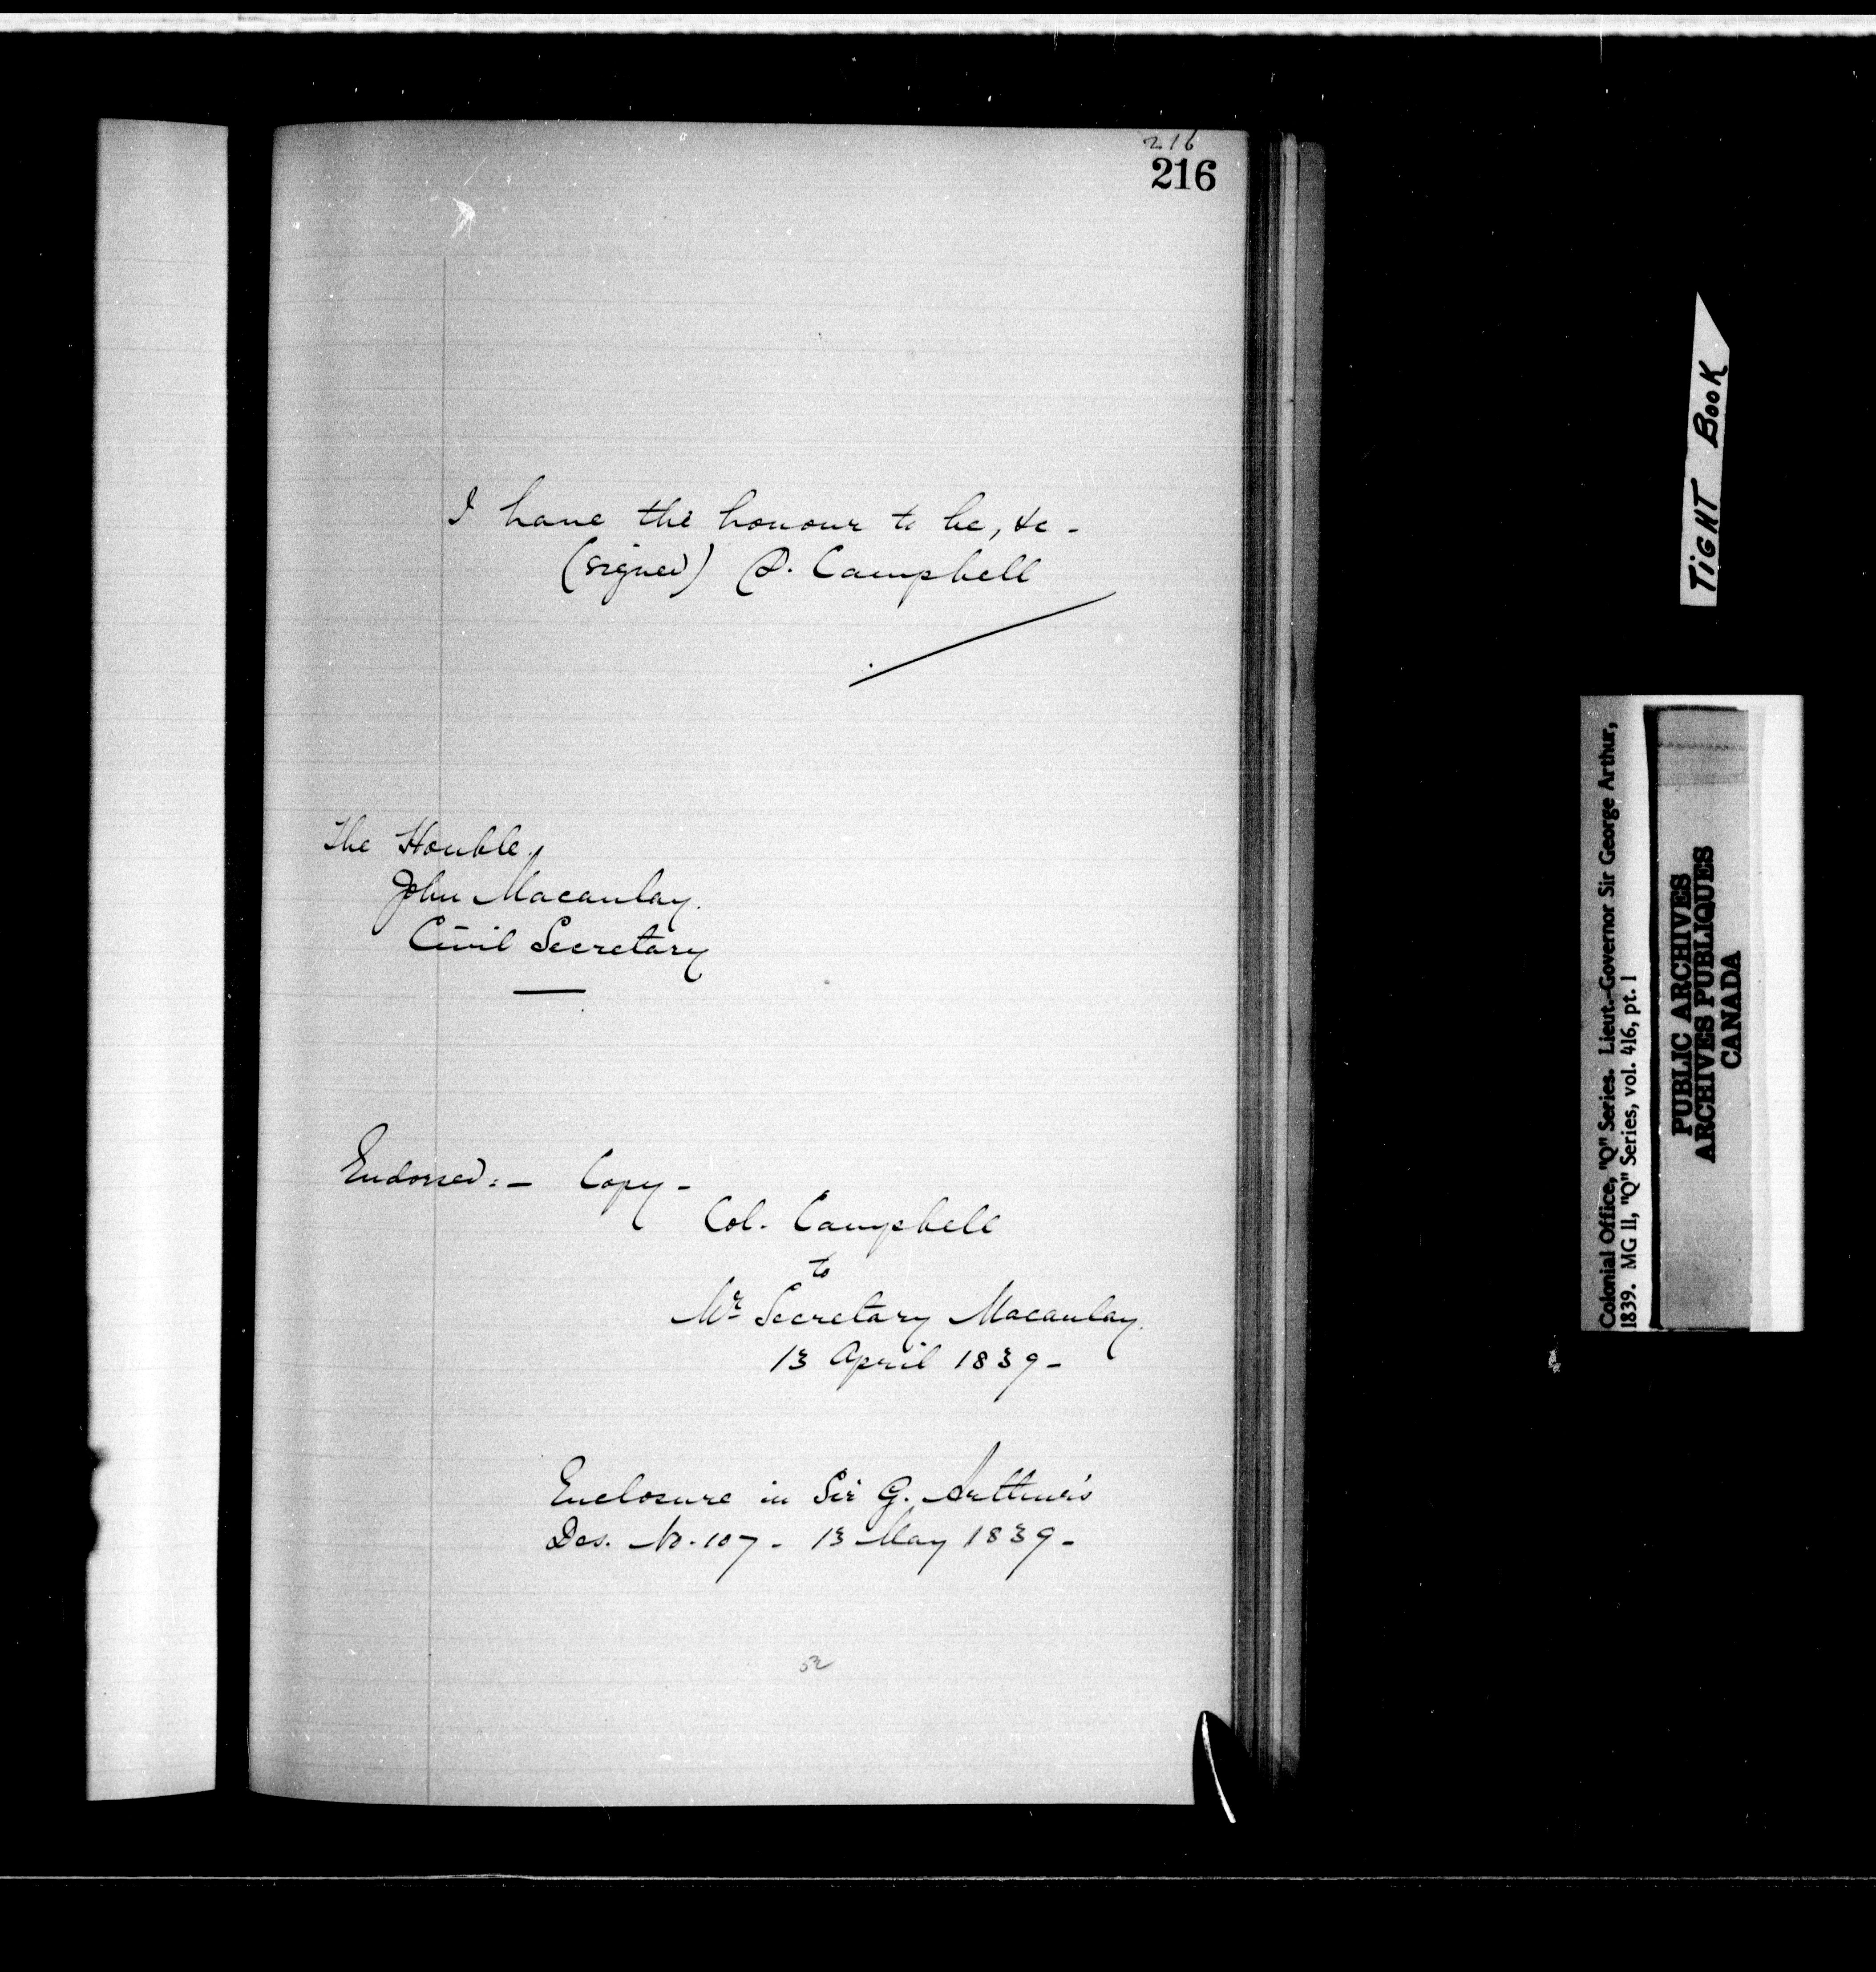 216
216
I have the honour to be, &c -
(signed) D. Campbell
The Honble.
John Macaulay.
Civil Secretary
Endorsed: - Copy -
Col. Campbell
to
Mr Secretary Macaulay.
13 April 1839 -
Enclosure in Sir G. Arthur's
Des. No. 107 - 13 May 1839 -
TIGHT BOOK
Colonial Office, "Q" Series. Lieut.-Governor Sir George Arthur,
1839. MG 11, "Q" Series, vol. 416, pt. 1
PUBLIC ARCHIVES
ARCHIVES PUBLIQUES
CANADA